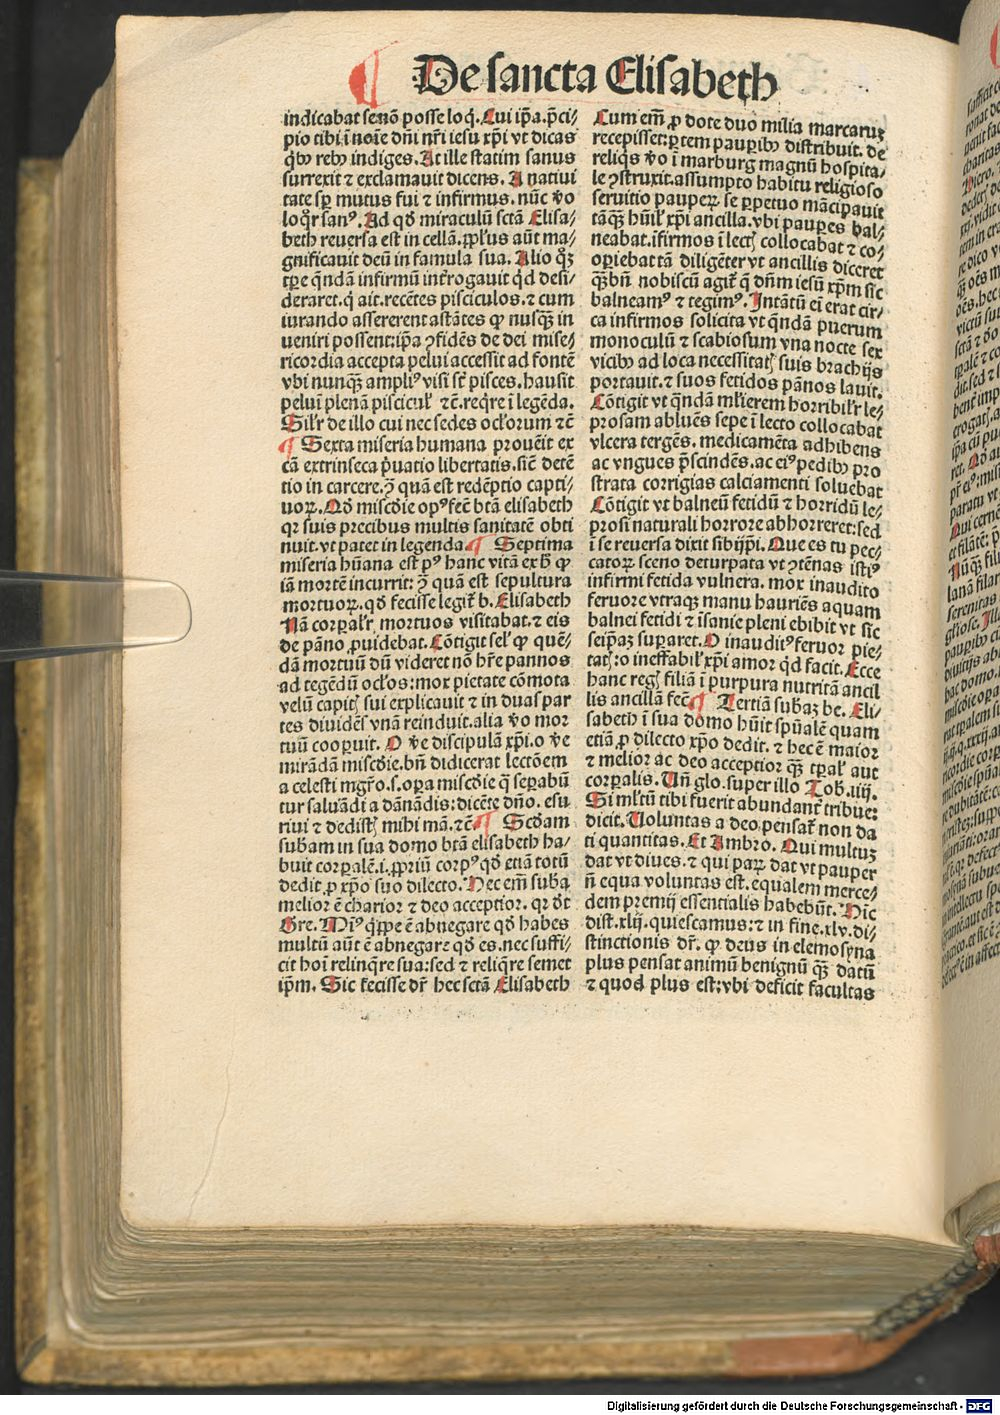 ¶ De sancta Elisabeth
indicabat se nõ posse loq̃. Cui ip̃a. p̃ci⸗
pio tibi ĩ noĩe dñi nr̃i iesu xp̃i vt dicas
qͥbꝰ rebꝰ indiges. At ille statim sanus
surrexit ⁊ exclamauit dicens. A natiui
tate sp̃ mutus fui ⁊ infirmus. nũc v̾o
loqͦr sanꝰ. Ad qđ miraculũ sctã Elisa⸗
beth reuersa est in cellã. ꝓplꝰus aũt ma⸗
gnificauit deũ in famula sua. Alio qͦꝫ
tp̃e qͤndã infirmũ int̾rogauit qͥd desi⸗
deraret. qͥ ait. recẽtes pisciculos. ⁊ cum
iurando assererent astãtes ꝙ nusqͣꝫ in
ueniri possent: ip̃a ꝯfidẽs de dei mise⸗
ricordia accepta pelui accessit ad fontẽ
vbi nunqͣꝫ ampliꝰ visi st̃ pisces. hausit
peluĩ plenã piscicul̾ ⁊c̃. req̃re ĩ legẽda.
Sil̾r de illo cui nec sedes ocl̾orum ⁊c̃
¶ Sexta miseria humana prouẽit ex
cã extrinseca p̾uatio libertatis. sic̃ detẽ
tio in carcere. ꝯ̾ quã est redẽptio capti⸗
uoꝝ. Qđ misc̾die opꝰ fec̃ btã elisabeth
qꝛ suis precibus multis sanitatẽ obti
nuit. vt patet in legenda. ¶ Septima
miseria hũana est pꝰ hanc vitã ex h̾ ꝙ
iã mortẽ incurrit: ꝯ̾ quã est sepultura
mortuoꝝ. qđ fecisse legit̾ b. Elisabeth
Nã corꝑal̾r mortuos visitabat. ⁊ eis
de pãno ꝓuidebat. Cõtigit sel̾ ꝙ quẽ⸗
dã mortuũ dũ videret nõ hr̃e pannos
ad tegẽdũ ocl̾os: mox pietate cõmota
velũ capiꝭ sui explicauit ⁊ in duas par
tes diuidẽs vnã reinduit. alia v̾o mor
tuũ cooꝑuit. O v̾e discipulã xp̃i. o v̾e
mirãdã misc̾die. bñ didicerat lectõem
a celesti mgr̃o. s. oꝑa misc̾die qͣ seꝑabũ
tur saluãdi a dãnãdis: dicẽte dño. esu
riui ⁊ dedistꝭ mihi mã. ⁊c̃. ¶ Scđam
subãm in sua domo btã elisabeth ha⸗
buit corꝑalẽ. i. ꝓpriũ corpꝰ qđ etiã totũ
dedit ꝓ xp̃o suo dilecto. Hec em̃ subã
melior ẽ charior ⁊ deo acceptior. qꝛ dt̃
Gre. Minꝰ qͥppe ẽ abnegare qđ habes
multũ aũt ẽ abnegare qđ es. nec suffi⸗
cit hoĩ relinq̃re sua: sed ⁊ reliq̃re semet
ip̃m. Sic fecisse dr̃ hec sctã Elisabeth
Cum em̃ ꝓ dote duo milia marcaruꝫ
recepisset: ꝑtem pauꝑibꝰ distribuit. de
reliqͥs v̾o ĩ marburg magnũ hospita⸗
le ꝯstruxit. assumpto habitu religioso
seruitio pauꝑeꝝ se ꝑpetuo mãcipauit
tãqͣꝫ hũil̾ xp̃i ancilla. vbi pauꝑes bal⸗
neabat. ifirmos ĩ lectꝭ collocabat ⁊ co⸗
oꝑiebat tã diligẽter vt ancillis diceret
qͣꝫ bñ nobiscũ agit̾ qͣ dñm iesũ xp̃m sic
balneamꝰ ⁊ tegimꝰ. Intãtũ eĩ erat cir⸗
ca infirmos solicita vt qͤndã puerum
monoculũ ⁊ scabiosum vna nocte sex
vicibꝰ ad loca necessitatꝭ suis brachijs
portauit. ⁊ suos fetidos pãnos lauit.
Cõtigit vt qͣndã ml̾ierem horribil̾r le⸗
prosam abluẽs sepe ĩ lecto collocabat
vlcera tergẽs. medicamẽta adhibens
ac vngues p̃scindẽs. ac eiꝰ pedibꝰ pro
strata corrigias calciamenti soluebat
Cõtigit vt balneũ fetidũ ⁊ horridũ le⸗
prosi naturali horrore abhorreret: sed
ĩ se reuersa dixit sibijp̃i. Que es tu pec⸗
catoꝝ sceno deturpata vt ꝯtẽnas istiꝰ
infirmi fetida vulnera. mox inaudito
feruore vtraqꝫ manu hauriẽs aquam
balnei fetidi ⁊ ĩsanie pleni ebibit vt sic
seip̃aꝫ suꝑaret. O inauditꝰ feruor pie⸗
tatꝭ: o ineffabil̾ xp̃i amor qͥd facit. Ecce
hanc regꝭ filiã ĩ purpura nutritã ancil
lis ancillã fec̃. ¶ Tertiã subãꝫ be. Eli⸗
sabeth ĩ sua domo hũit sp̃ualẽ quam
etiã ꝓ dilecto xp̃o dedit. ⁊ hec ẽ maior
⁊ melior ac deo acceptior qͣꝫ tp̃al̾ aut
corꝑalis. Uñ glo. super illo Tob. iiij.
Si ml̾tũ tibi fuerit abundant̾ tribue:
dicit. Uoluntas a deo pensat̾ non da
ti quantitas. Et Ambro. Qui multuꝫ
dat vt diues. ⁊ qui paꝝ dat vt pauper
ñ equa voluntas est. equalem merce⸗
dem premij essentialis habebũt. Hic
dist. xlij. quiescamus: ⁊ in fine. xlv. di⸗
stinctionis dr̃. ꝙ deus in elemosyna
plus pensat animũ benignũ qͣꝫ datũ
⁊ quod plus est: vbi deficit facultas
Digitalisierung gefördert durch die Deutsche Forschungsgemeinschaft - DFG